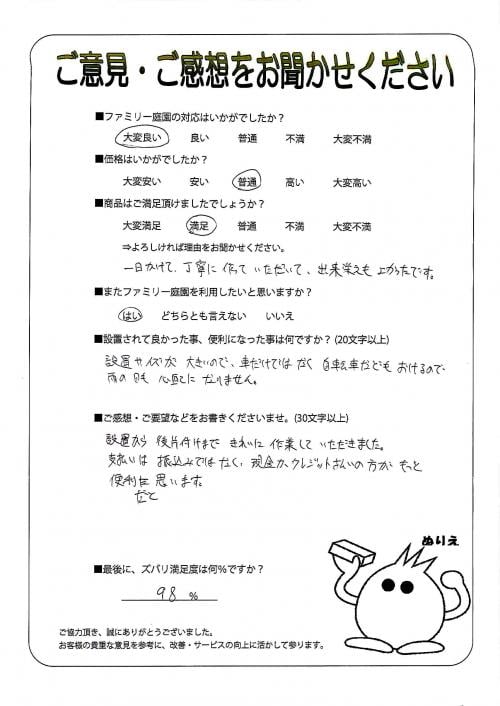 ご意見・ご感想をお聞かせください
■ファミリー庭園の対応はいかがでしたか？
大変良い 良い 普通 不満 大変不満
■価格はいかがでしたか？
大変安い 安い 普通 高い 大変高い
■商品はご満足頂けましたでしょうか？
大変満足 満足 普通 不満 大変不満
⇒よろしければ理由をお聞かせください。
一日かけて、丁寧に作っていただいて、出来栄えも上々です。
■またファミリー庭園を利用したいと思いますか？
はい どちらとも言えない いいえ
■設置されて良かった事、便利になった事は何ですか？(20文字以上)
設置サイズが大きいので、車だけではなく自転車などもおけるので
雨の日も心配になりません。
■ご感想・ご要望などをお書きくださいませ。(30文字以上)
設置から後片付けまできれいに作業していただきました。
支払いは振込みではなく、現金かクレジット払いの方がもっと
便利だと思います。
ぬりえ
■最後に、ズバリ満足度は何%ですか？
98 %
ご協力頂き、誠にありがとうございました。
お客様の貴重な意見を参考に、改善・サービスの向上に活かして参ります。